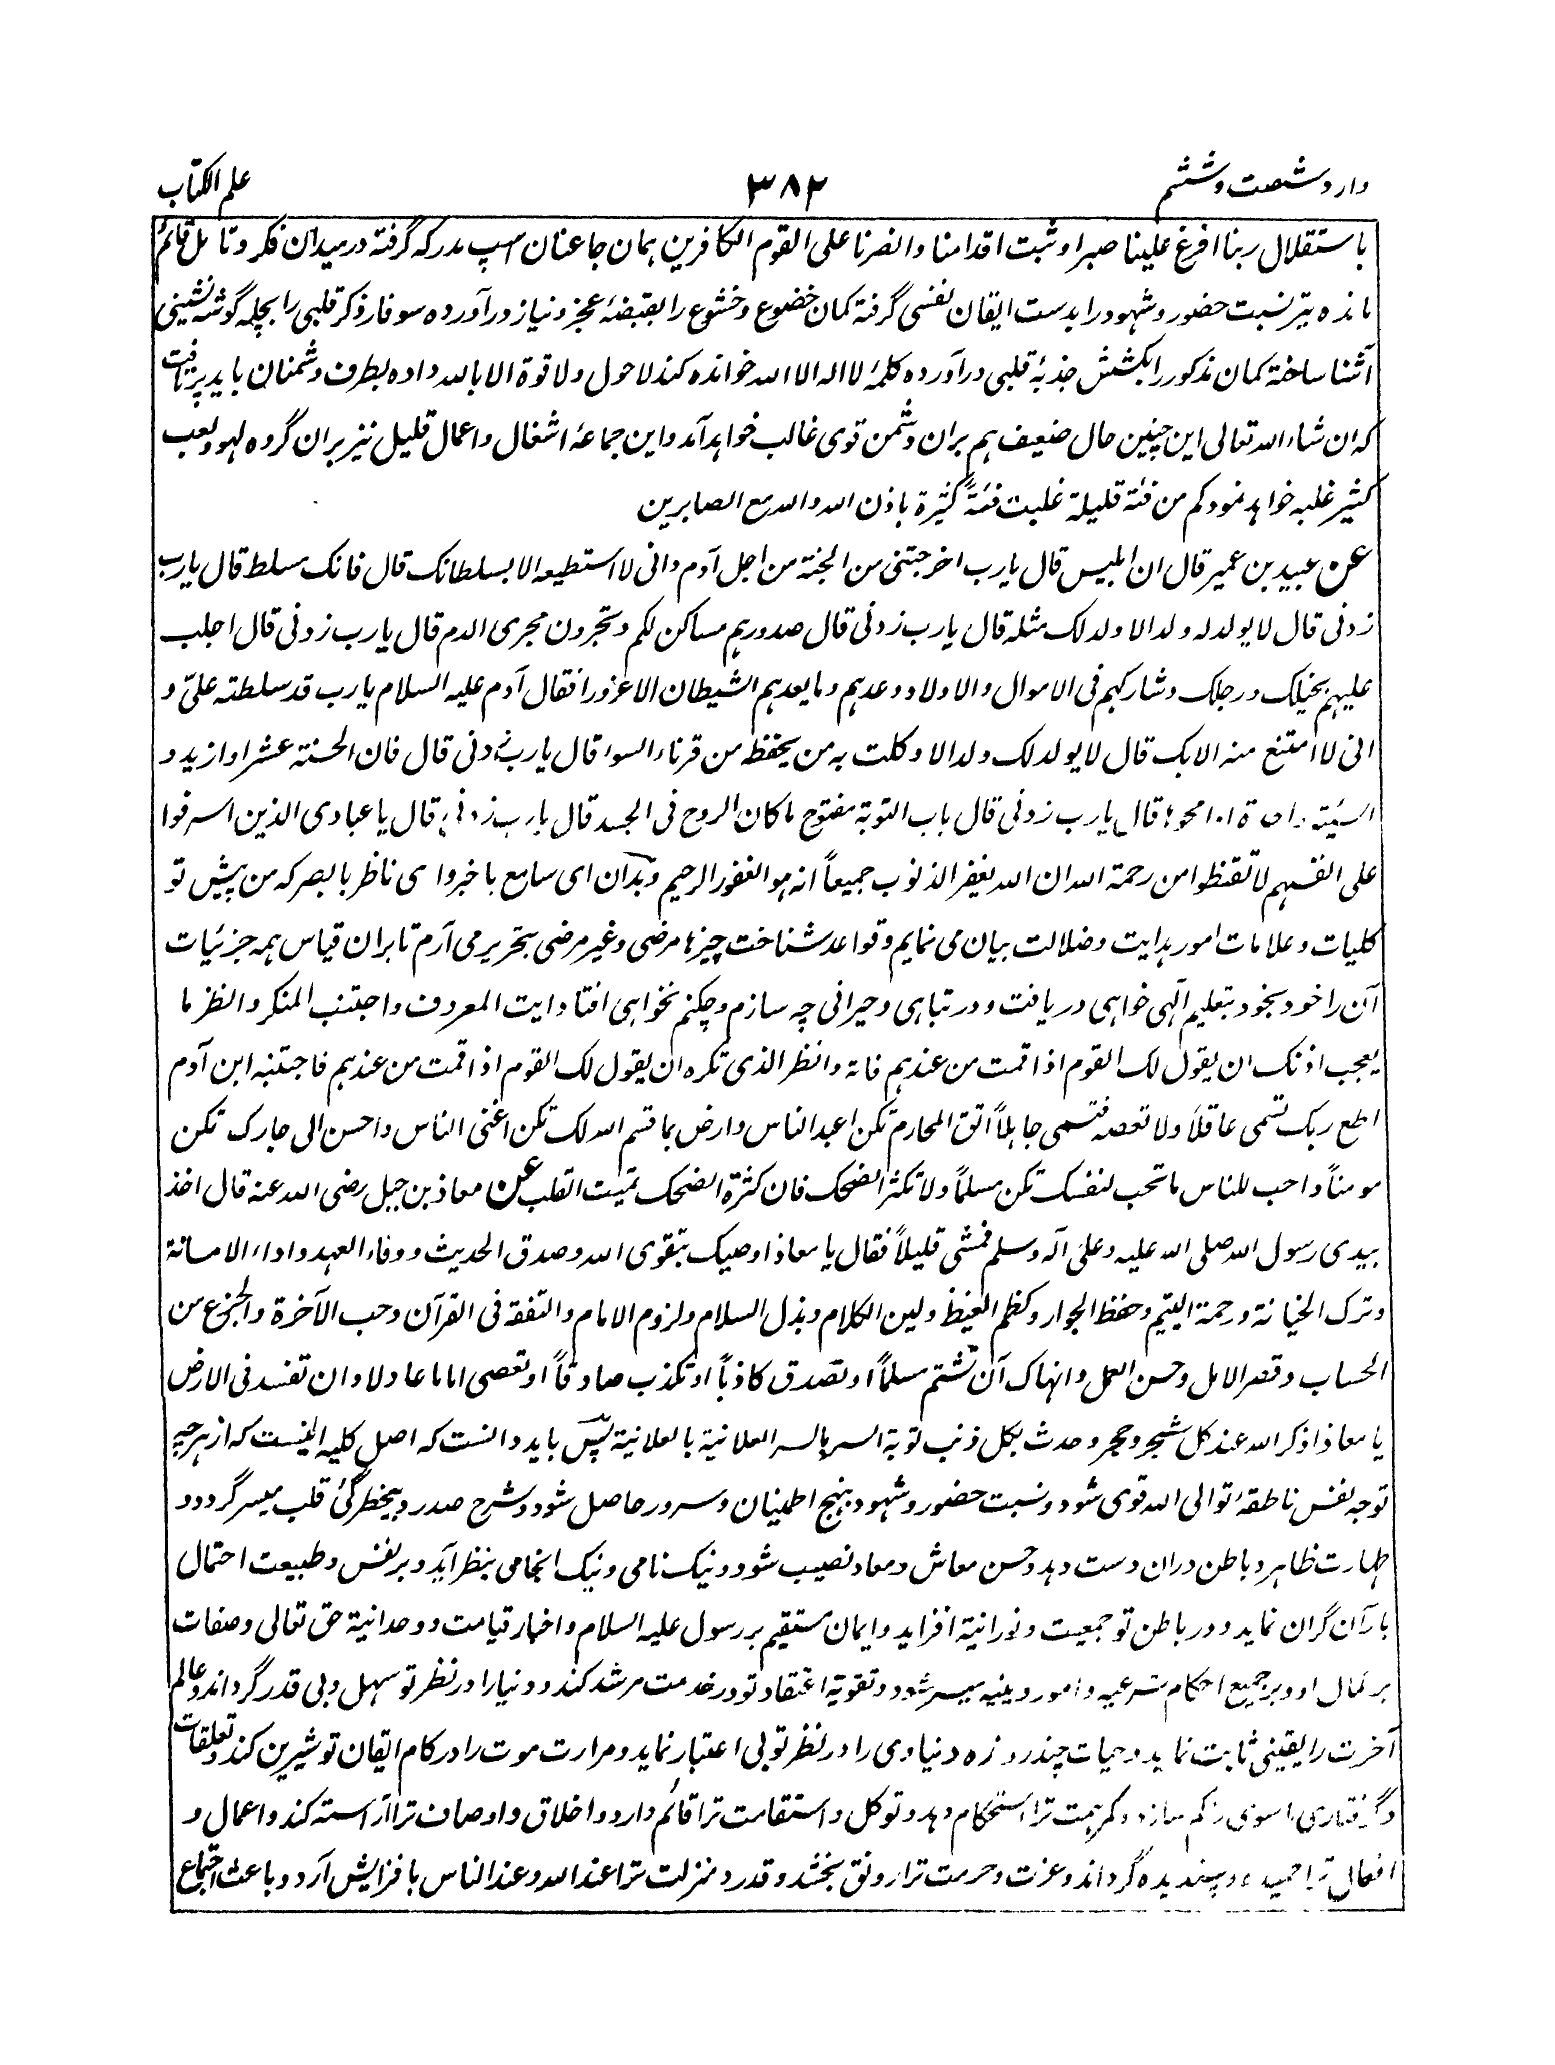 وارد شصت و ششم
٣٨٢
علم الکتاب
باستقلال ربنا افرغ علینا صبرا و ثبت اقدامنا وانصرنا علی القوم الکافرین همان جا عنان اسپ مدرکه گرفته در میدان فکر و تامل قائم
مانده تیر نسبت حضور و شهود را بدست ایقان نفسی گرفته کمان خضوع و خشوع را بقبضهٔ عجز و نیاز درآورده سوفار ذکر قلبی را بچله گوشه نشینی
آشنا ساخته کمان مذکور را بکشش جذبهٔ قلبی درآورده کلمهٔ لا اله الا الله خوانده کند لاحول ولا قوة الا بالله داده بطرف دشمنان باید پرتافت
که ان شاء الله تعالی این چنین حال ضعیف هم بران دشمن قوی غالب خواهد آمد و این جماعهٔ اشغال و اعمال قلیل نیز بران گروه لهو و لعب
کثیر غلبه خواهد نمود کم من فئة قلیلة غلبت فئةً کثیرة باذن الله والله مع الصابرین
عن عبید بن عمیر قال ان ابلیس قال یا رب اخرجتنی من الجنة من اجل آدم و انی لا استطیعه الا بسلطانک قال فانک مسلط قال یا رب
زدنی قال لا یولد له ولد الا ولد لک مثله قال یا رب زدنی قال صدورهم مساکن لکم و تجرون مجری الدم قال یا رب زدنی قال اجلب
علیهم بخیلک و رجلک و شارکهم فی الاموال والاولاد وعدهم وما یعدهم الشیطان الا غرورا فقال آدم علیه السلام یا رب قد سلطته علیّ و
انی لا امتنع منه الا بک قال لا یولد لک ولد الا وکلت به من یحفظه من قرناء السوا قال یا رب زدنی قال فان الحسنة عشرا و ازید و
السیئة واحدة او امحوها قال یا رب زدنی قال باب التوبة مفتوح ما کان الروح فی الجسد قال یا رب زدنی قال یا عبادی الذین اسرفوا
علی انفسهم لا تقنطوا من رحمة الله ان الله یغفر الذنوب جمیعاً انه هو الغفور الرحیم و بدان ای سامع باخبر و ای ناظر بالبصر که من پیش تو
کلیات و علامات امور هدایت و ضلالت بیان می نمایم و قواعد شناخت چیزها مرضی و غیر مرضی بتحریر می آرم تا بران قیاس همه جزئیات
آن را خود بخود بتعلیم آلهی خواهی دریافت و در تباهی و حیرانی چه سازم و چکنم نخواهی افتاد ایت المعروف واجتنب المنکر وانظر ما
یعجب اذنک ان یقول لک القوم اذا قمت من عندهم فاته وانظر الذی تکره ان یقول لک القوم اذا قمت من عندهم فاجتنبه ابن آدم
اطع ربک تسمی عاقلاً ولا تعصه فتسمی جاهلاً اتق المحارم تکن اعبد الناس وارض بما قسم الله لک تکن اغنی الناس واحسن الی جارک تکن
مومناً واحب للناس ما تحب لنفسک تکن مسلماً ولا تکثر الضحک فان کثرة الضحک تمیت القلب عن معاذ بن جبل رضی الله عنه قال اخذ
بیدی رسول الله صلی الله علیه وعلی آله وسلم فمشی قلیلاً فقال یا معاذ اوصیک بتقوی الله وصدق الحدیث ووفاء العهد واداء الامانة
وترک الخیانة ورحمة الیتیم وحفظ الجوار وکظم الغیظ ولین الکلام وبذل السلام ولزوم الامام والتفقه فی القرآن وحب الآخرة والجزع من
الحساب وقصر الامل وحسن العمل وانهاک آن تشتم مسلماً او تصدق کاذباً او تکذب صادقاً او تعصی اماما عادلا وان تفسد فی الارض
یا معاذ اذکر الله عند کل شجر وحجر وحدث بکل ذنب توبة السر بالسر العلانیة بالعلانیة پس باید دانست که اصل کلیه اینست که از هر چه
توجه نفس ناطقهٔ تو الی الله قوی شود و نسبت حضور و شهود بنهج اطمینان و سرور حاصل شود و شرح صدر و بیخطرگیٔ قلب میسر گردد و
طهارت ظاهر و باطن دران دست دهد و حسن معاش و معاد نصیب شود و نیک نامی و نیک انجامی بنظر آید و بر نفس و طبیعت احتمال
بار آن گران نماید و در باطن تو جمعیت و نورانیة افزاید و ایمان مستقیم بر رسول علیه السلام و اخبار قیامت و وحدانیة حق تعالی و صفات
بر کمال او و بر جمیع احکام شرعیه و امور دینیه میسر شود و تقویة اعتقاد تو در خدمت مرشد کند و دنیا را در نظر تو سهل و بی قدر گرداند و عالم
آخرت را یقینی ثابت نماید و حیات چند روزه دنیاوی را در نظر تو بی اعتبار نماید و مرارت موت را در کام ایقان تو شیرین کند و تعلقات
و گرفتاری ماسوی را کم سازد و کمر همت ترا استحکام دهد و توکل و استقامت ترا قائم دارد و اخلاق و اوصاف ترا آراسته کند و اعمال و
افعال ترا حمیده و پسندیده گرداند و عزت و حرمت ترا رونق بخشد و قدر و منزلت ترا عند الله و عند الناس بافزایش آرد و باعث اجتماع